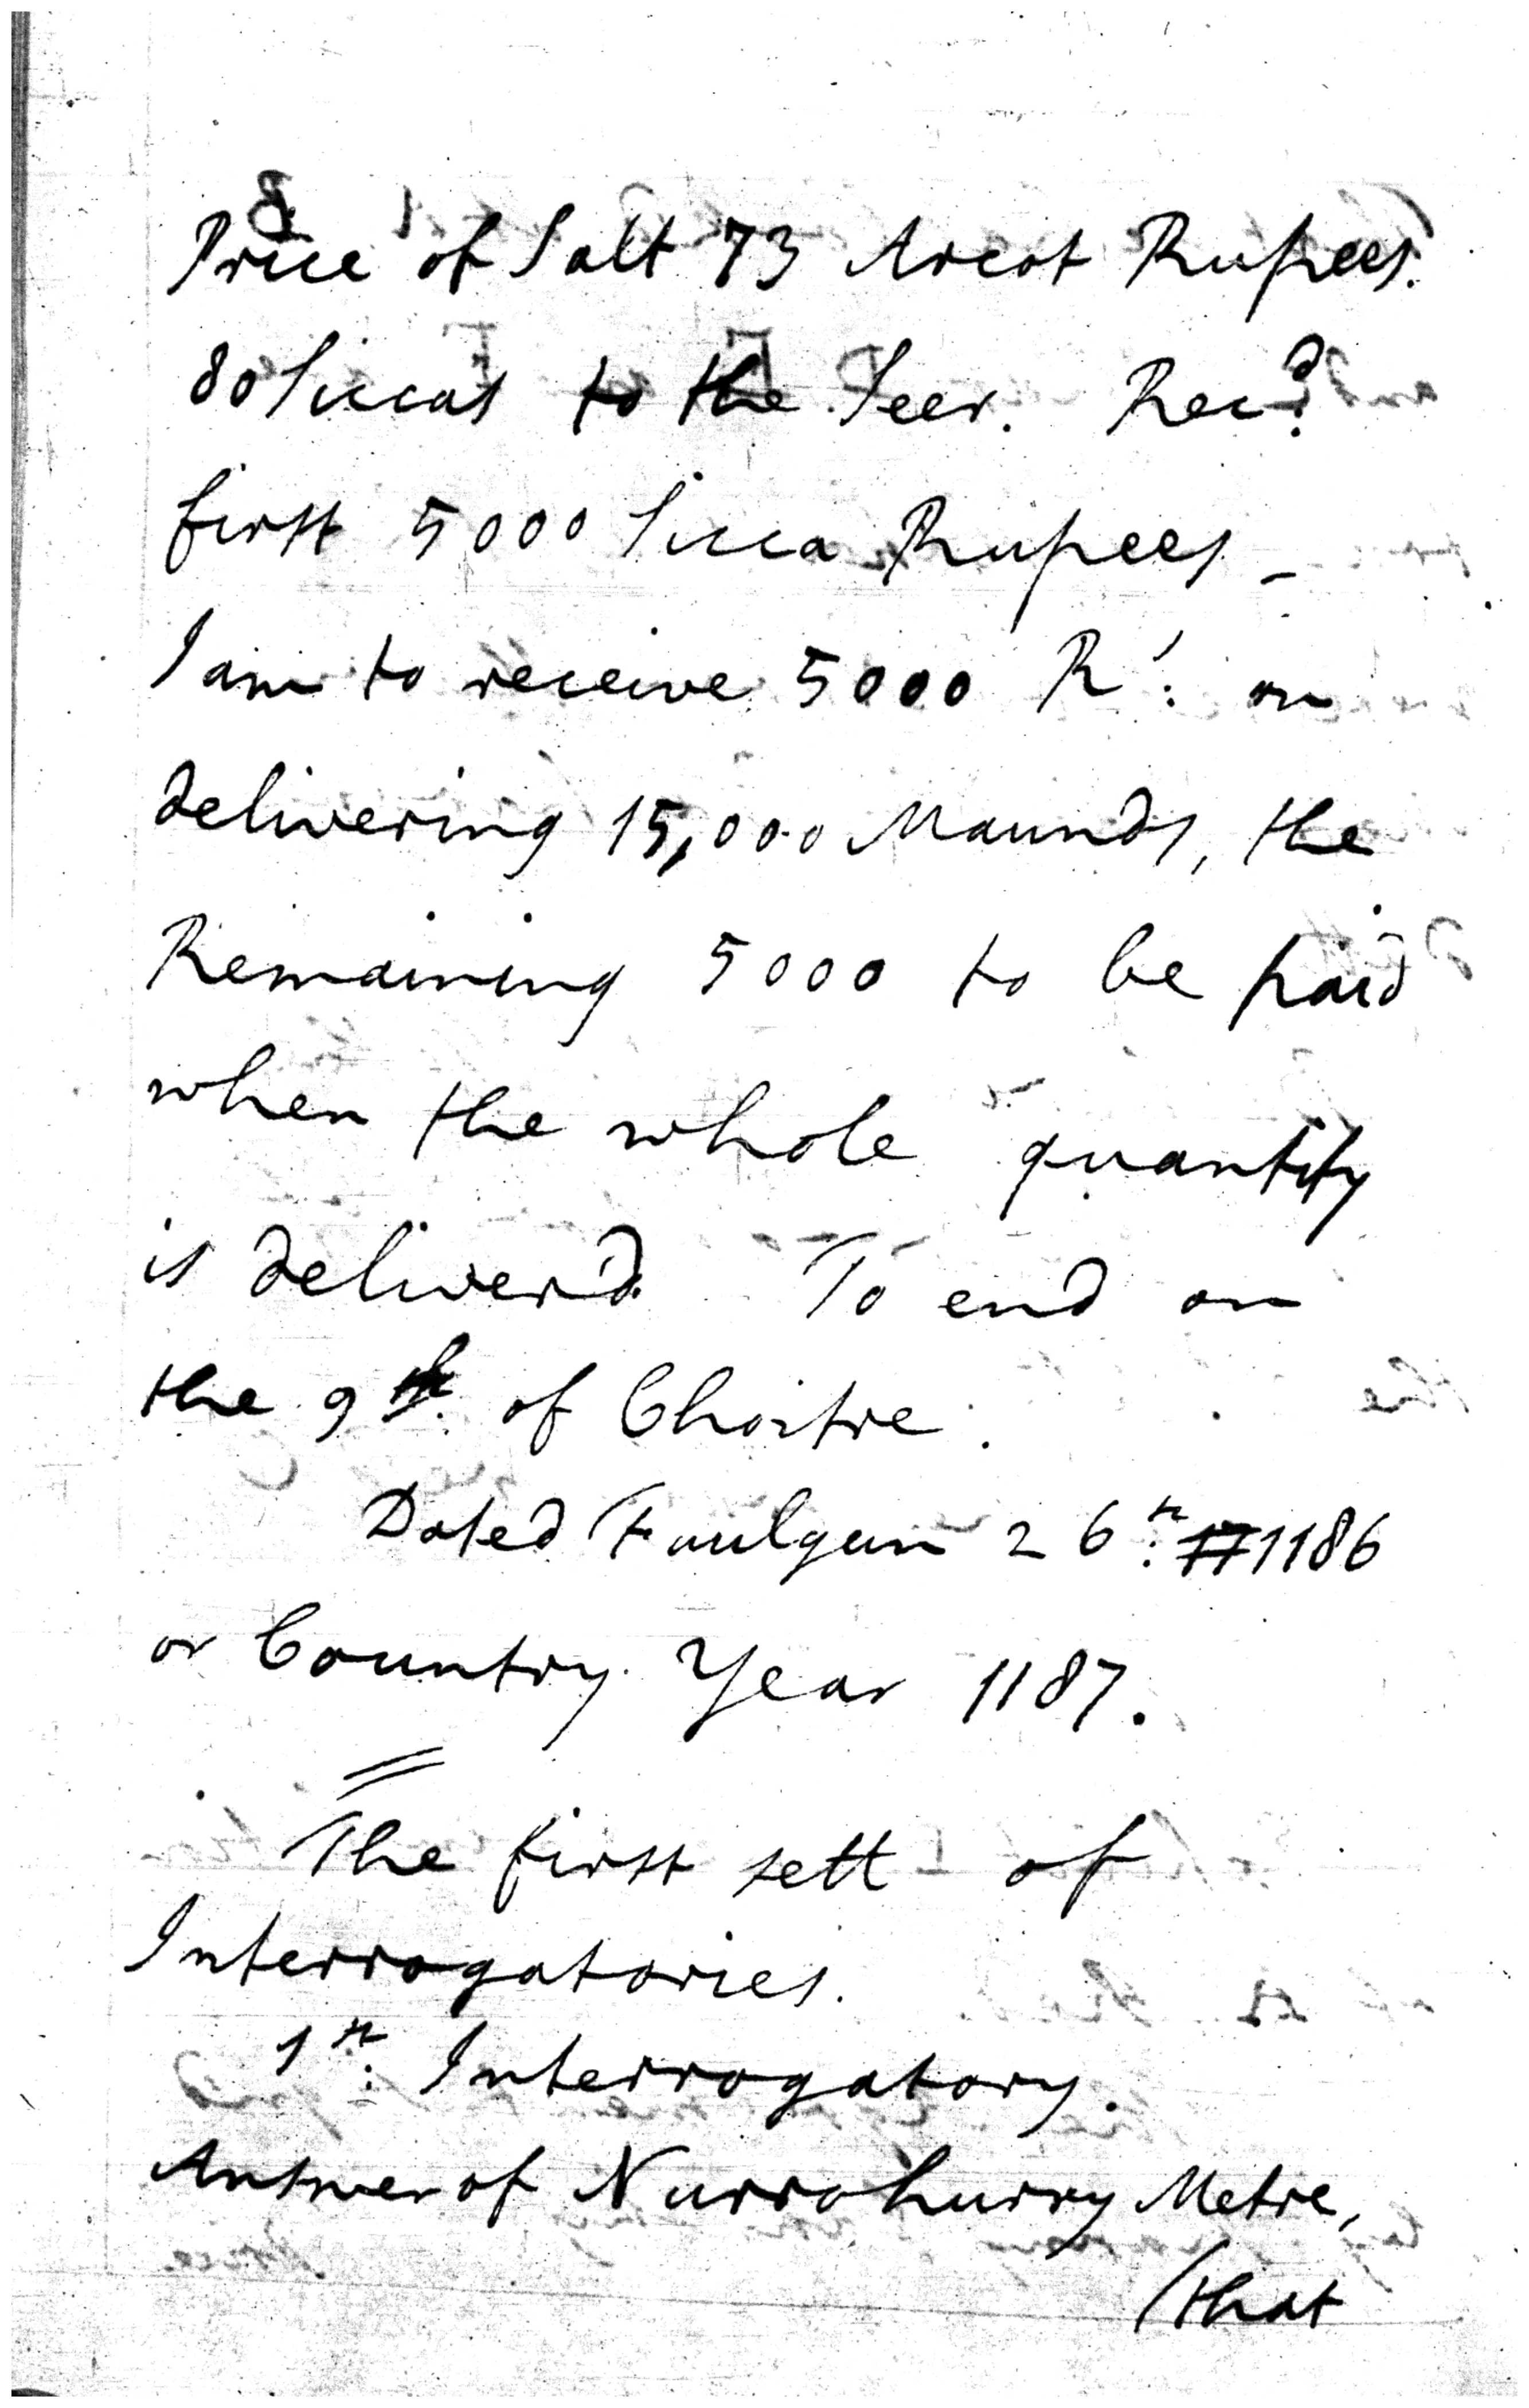 Price of Salt 73 Arcot Rupees.
80 Siccas to the Seer. Rec.d
first 5000 Sicca Rupees –
I am to receive 5000 R.s on
delivering 15,000 Maunds, the
Remaining 5000 to be paid
when the whole quantity
is deliver'd. To end on
the 9th. of Choitre.
Dated Faulgun 26th. 1186
or Country Year 1187.
The first sett of
Interrogatories.
1st. Interrogatory.
Answer of Nurrohurry Metre,
(that